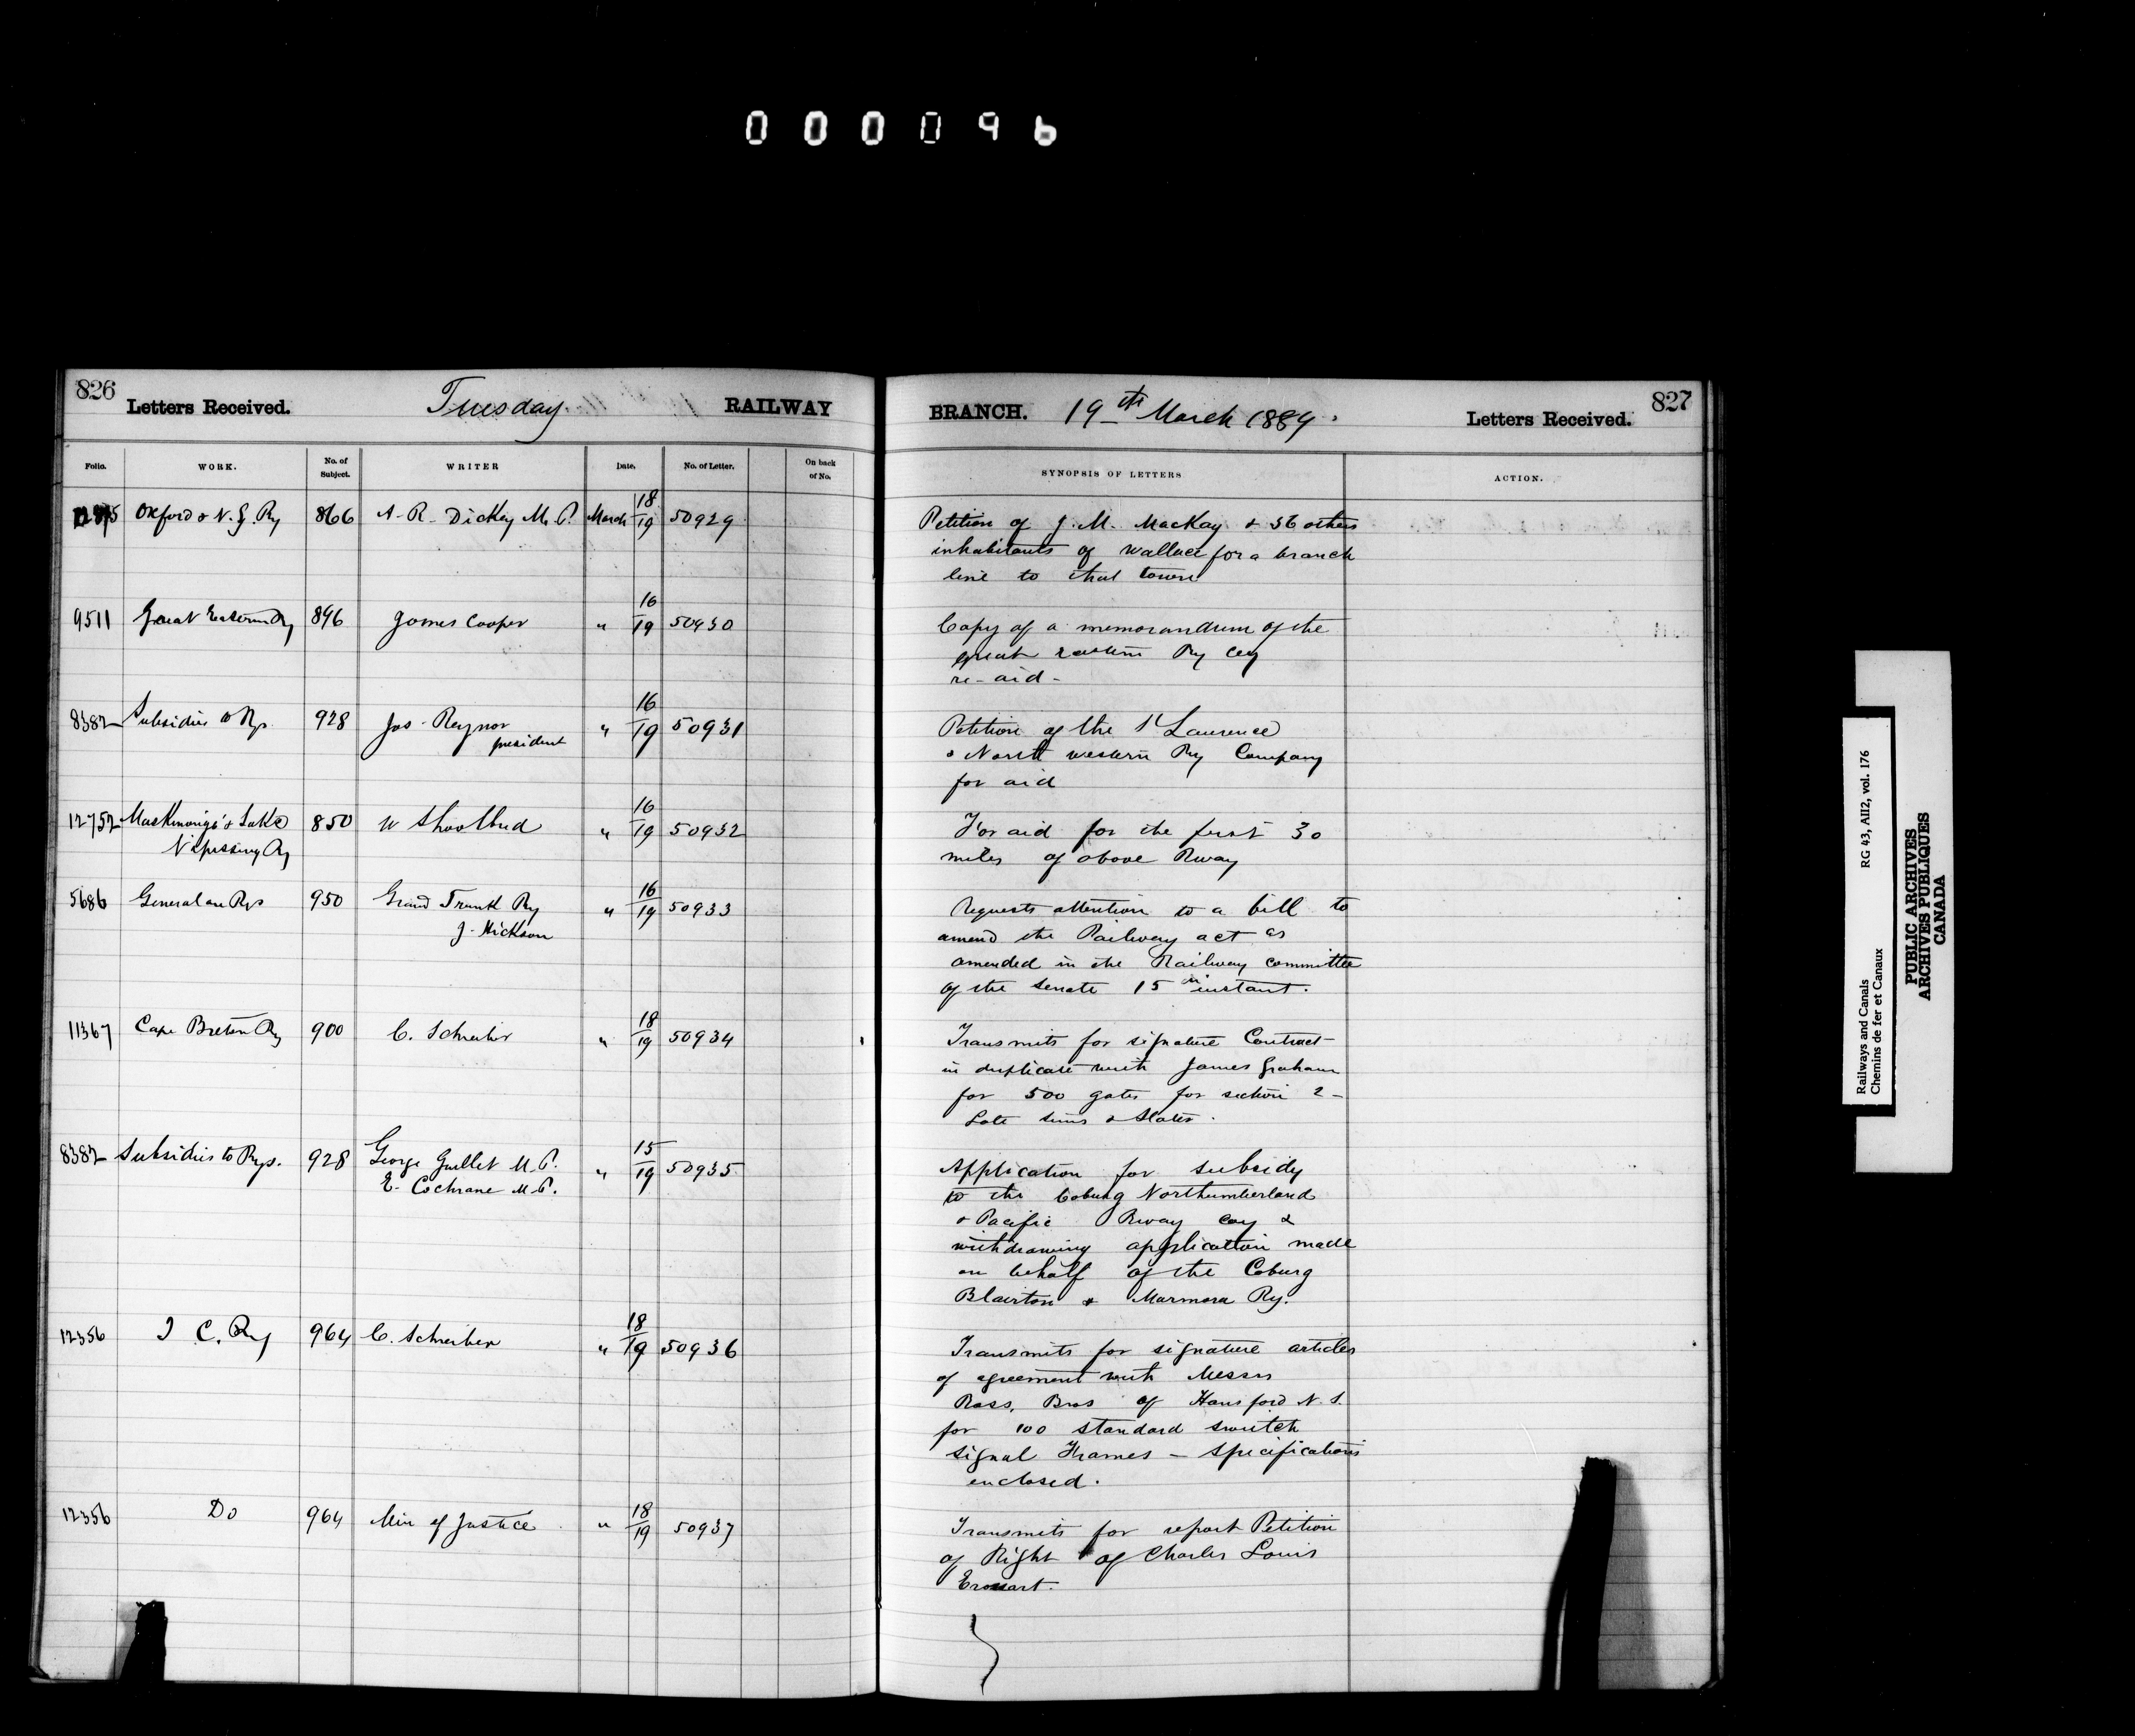 000096
826
Letters Received.
Tuesday
RAILWAY
Folio.
WORK.
No. of Subject.
WRITER
Date.
No. of Letter.
On back of No.
Oxford & N. G. Ry 866 A. R. Dickey M. P. March 18/19 50929
9511 Great Eastern Ry 896 James Cooper " 16/19 50930
8382 Subsidies to Rys 928 Jas. Raynor " 16/19 50931
president
12752 Maskinongé & Lake 850 W Shoolbred " 16/19 50932
Nipissing Ry
5686 General on Rys 950 Grand Trunk Ry " 16/19 50933
J. Hickson
11367 Cape Breton Ry 900 C. Schreiber " 18/19 50934
8382 Subsidies to Rys. 928 George Guillet M. P. " 15/19 50935
E. Cochrane M. P.
12356 I C. Ry 964 C. Schreiber " 18/19 50936
12356 Do 964 Min of Justice " 18/19 50937
BRANCH.
19th March 1889.
Letters Received.
827
SYNOPSIS OF LETTERS
ACTION.
Petition of J. M. MacKay & 36 others
inhabitants of Wallace for a branch
line to that town
Copy of a memorandum of the
great eastern Ry Coy
re-aid-
Petition of the St Laurence
& North western Ry Company
for aid
For aid for the first 30
miles of above Rway
Requests attention to a bill to
amend the Railway act as
amended in the Railway committee
of the senate 15th instant.
Transmits for signature Contract
in duplicate with James Graham
for 500 gates for section 2 -
Late Sims & Slater.
Application for subsidy
to the Coburg Northumberland
& Pacific Rway coy &
withdrawing application made
on behalf of the Coburg
Blairton & Marmora Ry.
Transmits for signature articles
of agreement with Messrs
Ross, Bros of Hansford N. S.
for 100 standard switch
signal Frames - specifications
enclosed.
Transmits for report Petition
of Right of Charles Louis
Railways and Canals RG 43, AII2, vol. 176
Chemins de fer et Canaux
PUBLIC ARCHIVES
ARCHIVES PUBLIQUES
CANADA